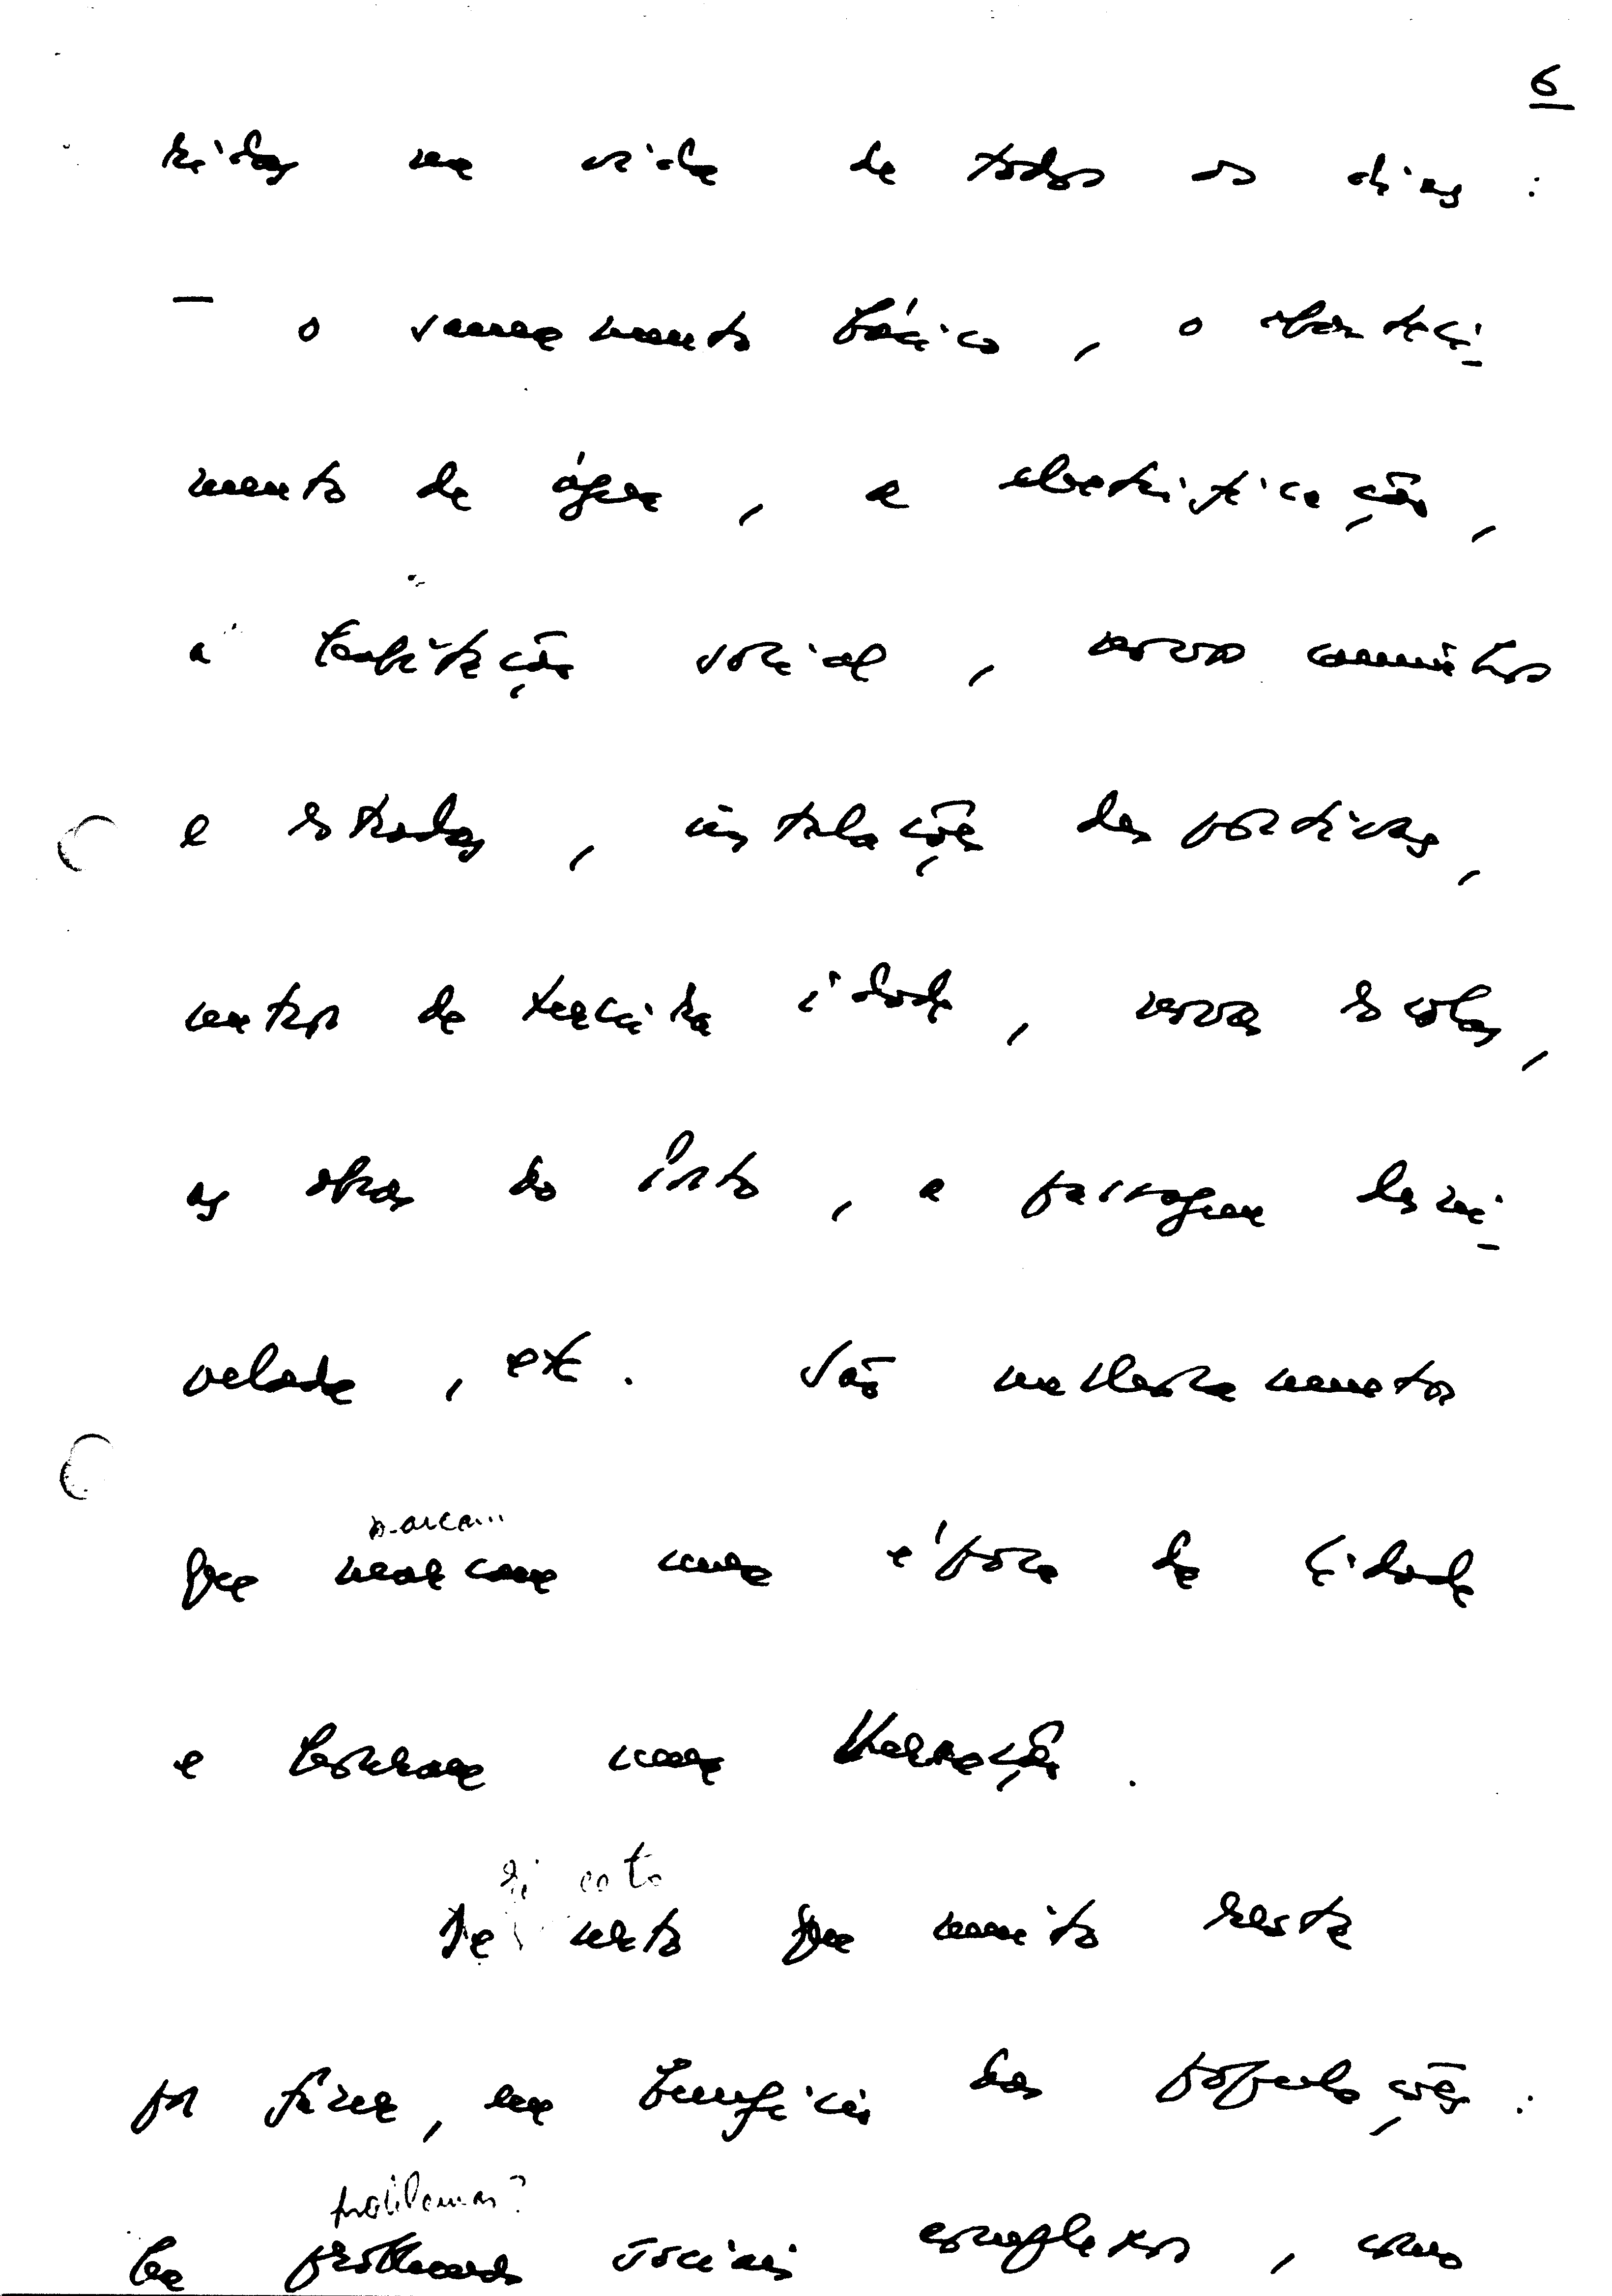 6
ridas na vida de todos os dias :
— o saneamento básico, o abasteci-
mento de água, a electrificação,
a habitação social, novos caminhos
e estradas, instalações desportivas,
centros de terceira idade, novas escolas,
as obras do Porto, a passagem desni-
velada, etc. São melhoramentos
marcam
que marcam uma época da cidade
e honram uma Vereação.
É certo
É certo que muito resta
por fazer, em benefício das populações :
problemas?
há problemas sociais complexos, como